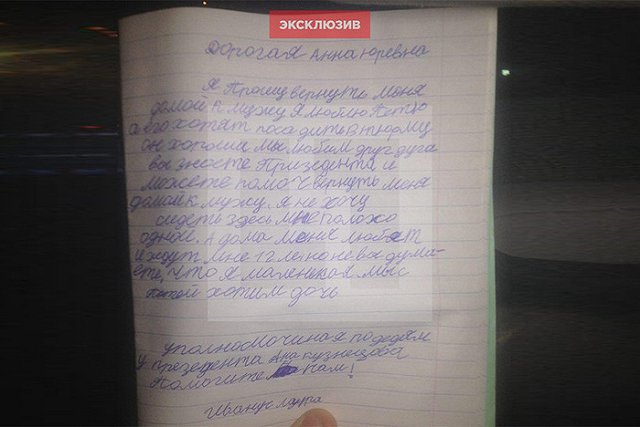 ЭКСКЛЮЗИВ
Дорогая Анна юревна
Я Прошу вернуть меня
домой к мужу Я люблю Петю
а его хотят посадить в тюрьму
он хороший мы любим друг друга
вы знаете Призедента и
можете помоч вернуть меня
домой к мужу. Я не хочу
сидеть здесь мне полохо
одной. А дома меня любят
и ждут мне 12 лет но не вы дума-
ете, что я маленькая мы с
петей хотим дочь
уполномочиная по детям
у президента Ана кузнецова
Помогите нам!